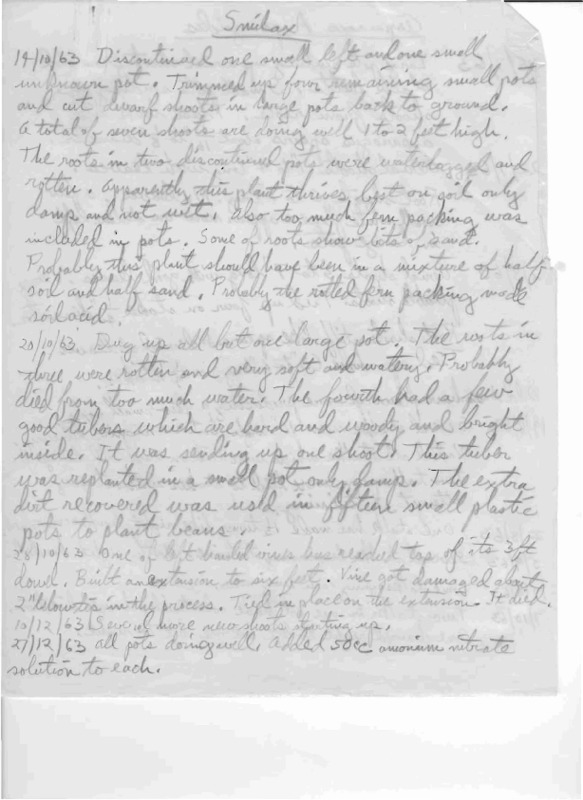 Smilax
14/10/63 Discontinued one small left and one small
unknown pot. Trimmed up four remaining small pots
and cut dwarf shoots in large pots back to ground.
A total of seven shoots are doing well 1 to 2 feet high.
The roots in two discontinued pots were waterlogged and
rotten. Apparently this plant thrives best on soil only
damp and not wet. Also too much fern packing was
included in pots. Some of roots show bits of sand.
Probably this plant should have been in a mixture of half
soil and half sand. Probably the rotted fern packing made
soil acid.
20/10/63 Dug up all but one large pot. The roots in
three were rotten and very soft and watery. Probably
died from too much water. The fourth had a few
good tubers which are hard and woody and bright
inside. It was sending up one shoot. This tuber
was replanted in a small pot only damp. The extra
dirt recovered was used in fifteen small plastic
pots to plant beans.
/10/63 One of left handed vines has reached top of its 3ft
dowl. Built an extension to six feet. Vine got damaged about
2" below tip in the process. Tied in place on the extension. It died.
10/12/63 Several more new shoots starting up.
27/12/63 all pots doing well. Added 50cc amonium nitrate
solution to each.